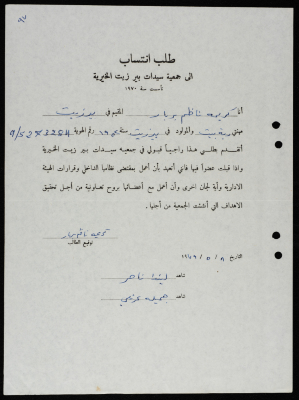 طلب انتساب
الى جمعية سيدات بير زيت الخيرية
تأسست سنة ١٩٧٠
أنا كريمة ناظم المقيم في بيرزيت
مهنتي والمولود في بيرزيت سنة رقم الهوية
أتقدم بطلبي هذا راجياً قبولي في جمعية سيدات بير زيت الخيرية
واذا قبلت عضواً فيها فاني أتعهد بأن أعمل بمقتضى نظامها الداخلي وقرارات الهيئة
الادارية وأية لجان اخرى وأن أعمل مع أعضائها بروح تعاونية من أجل تحقيق
الاهداف التي أنشئت الجمعية من أجلها.
توقيع الطالب
التاريخ
شاهد
شاهد